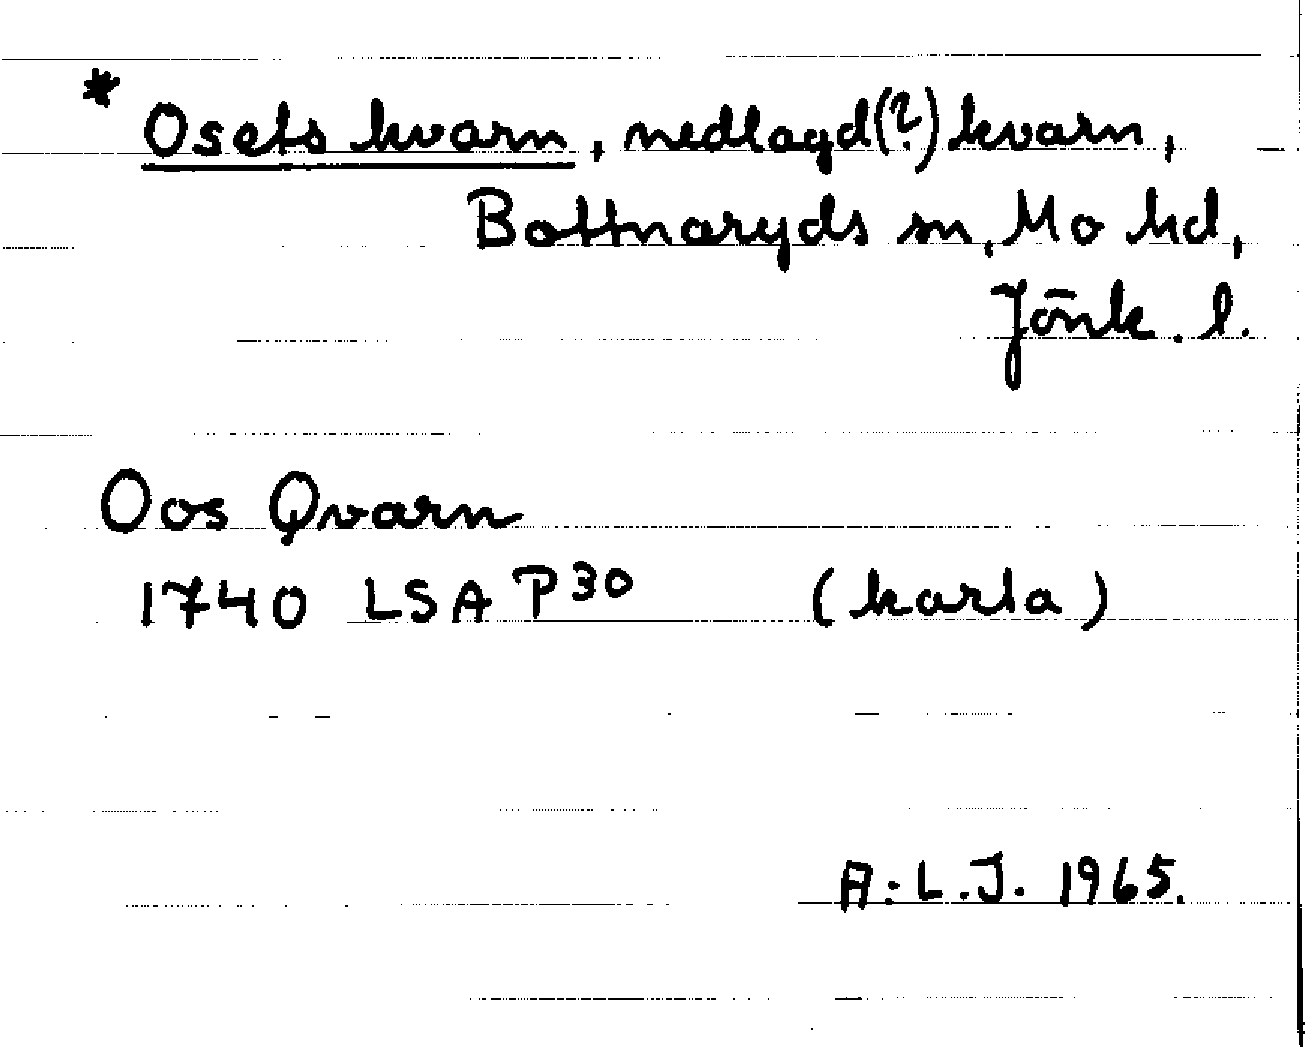 * Osets kvarn, nedlagd(?) kvarn,
Bottnaryds sn, Mo hd,
Jönk. l.
Oos Qvarn
1740 LSA P30 (karta)
A:L.J. 1965.